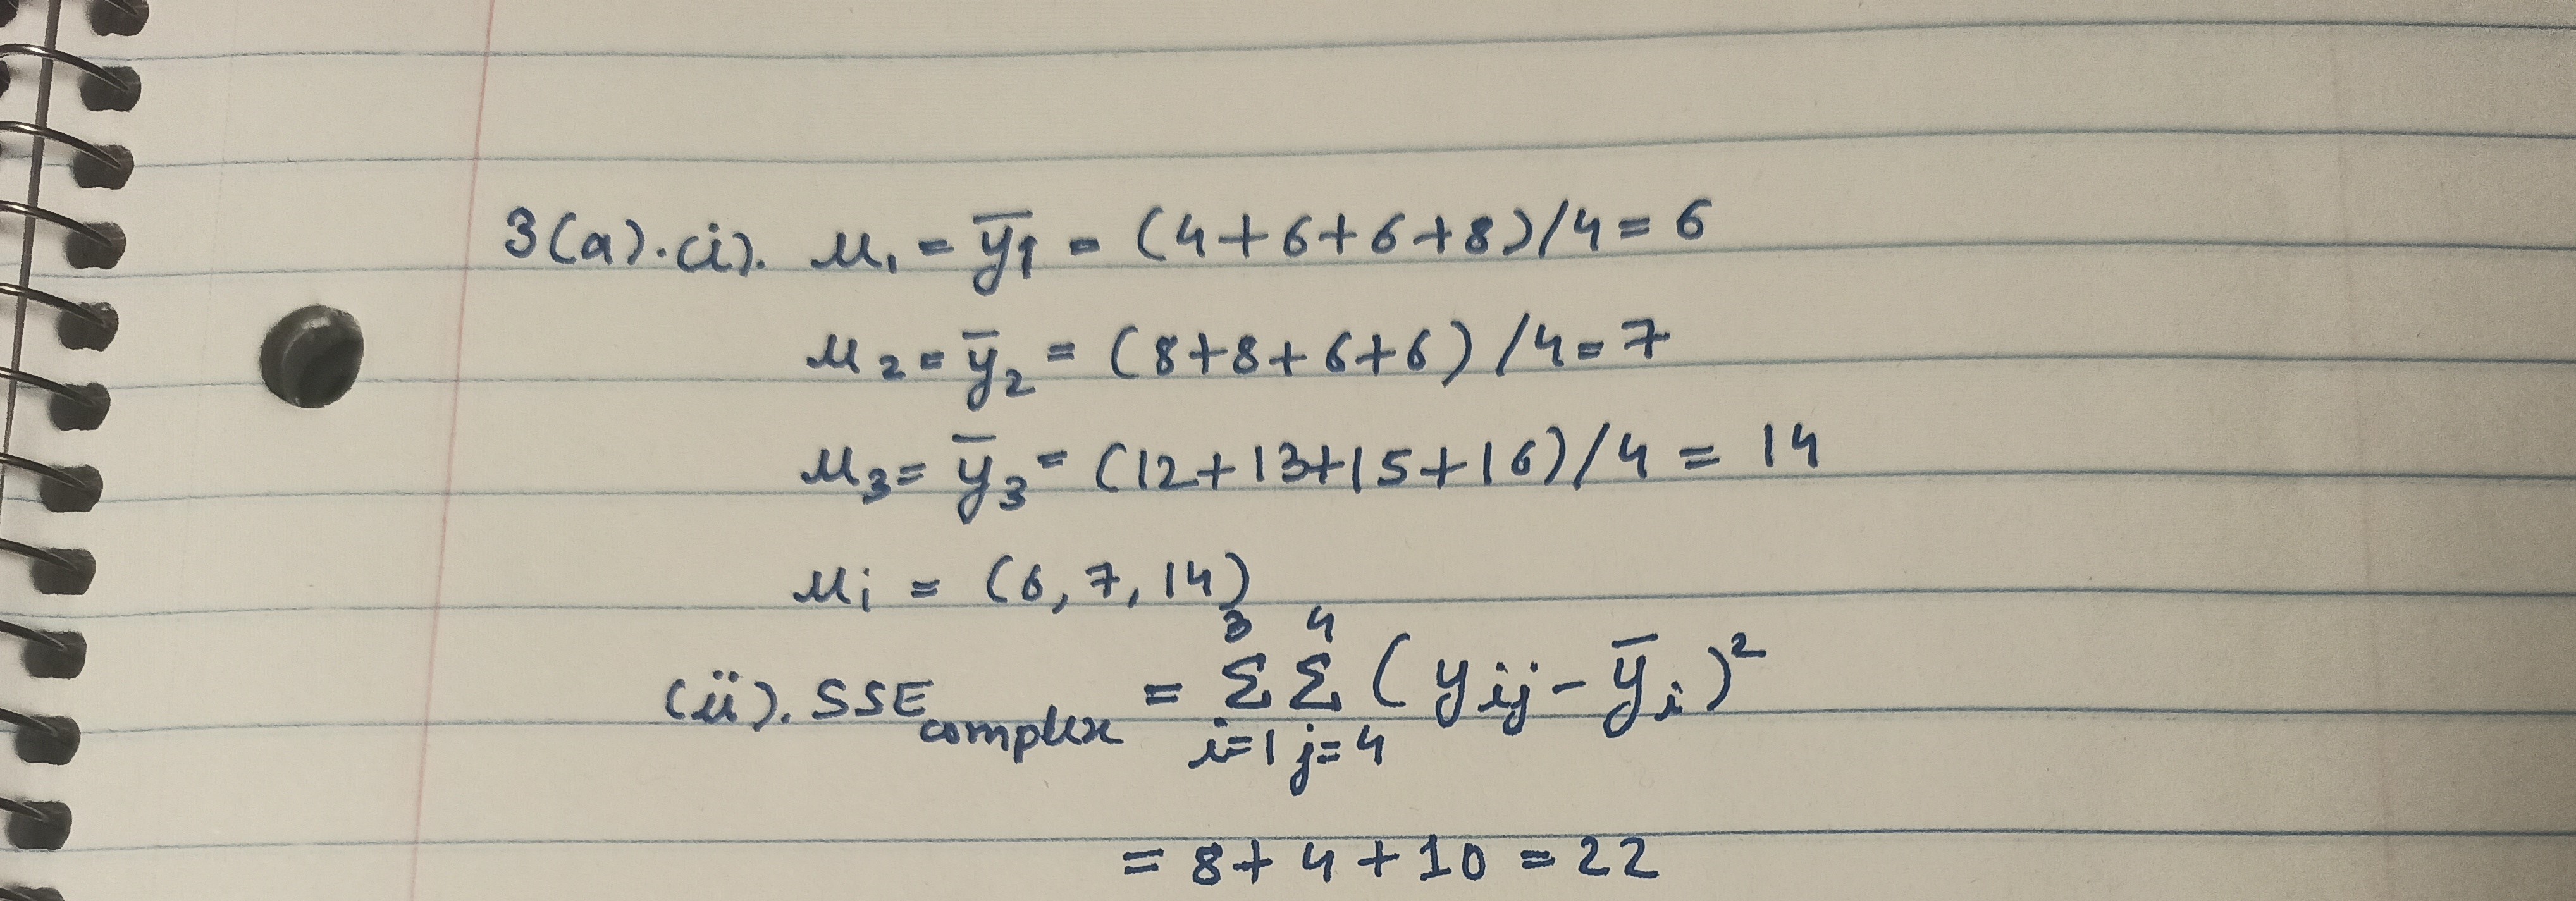 3(a).(i). μ₁ = ȳ₁ = (4+6+6+8)/4 = 6
μ₂ = ȳ₂ = (8+8+6+6)/4 = 7
μ₃ = ȳ₃ = (12+13+15+16)/4 = 14
μi = (6, 7, 14)
(ii). SSE complex = Σ_{i=1}^{3} Σ_{j=4}^{4} (yij - ȳi)²
= 8+4+10 = 22